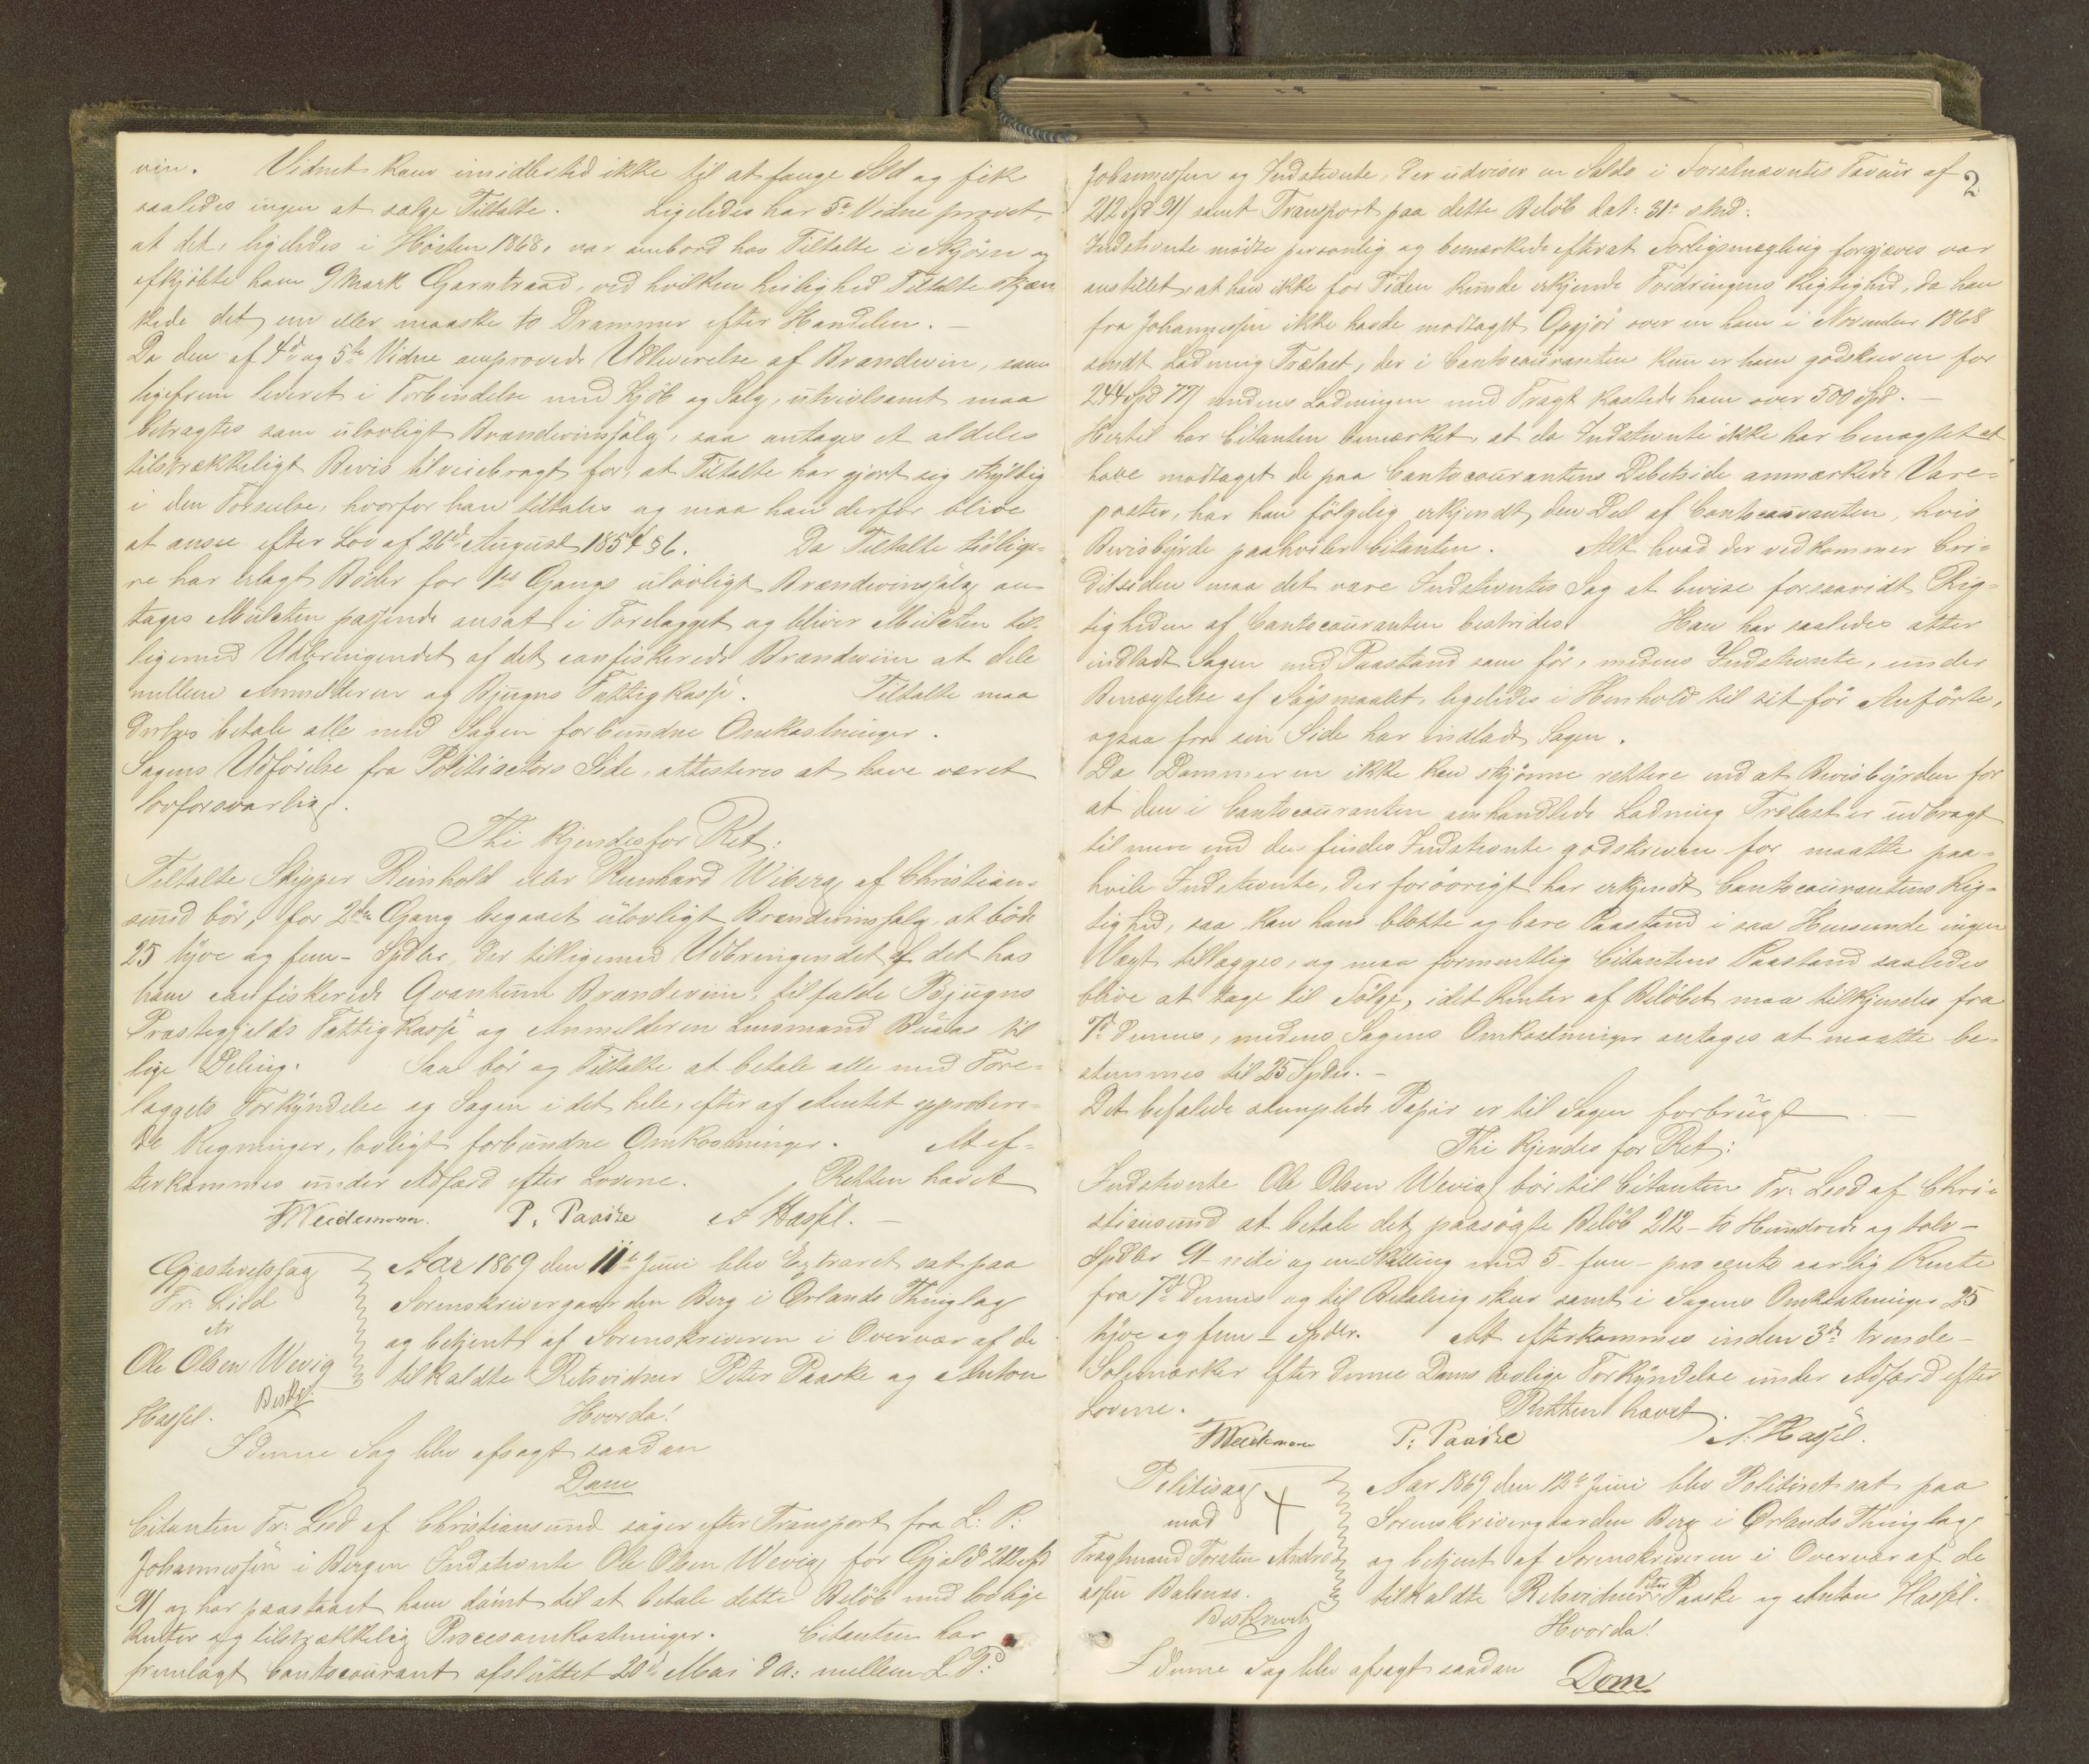 vin. Vidnet kom imidlertid ikke til at fange Sild og fik
saaledes ingen at sælge Tiltalte. Ligeledes har 5te Vidne provet
at det, ligeledes i Høsten 1868, var ombord hos Tiltalte i Skjörn og
afkjöbte ham 9 Mark Garntraad, ved hvilken Leilighed Tiltalte skjæn-
kede det en eller maaske to Drammer efter Handelen. —
Da den af 4de og 5te Vidne omprovede Udleverelse af Brændevin, som
ligefrem leveret i Forbindelse med Kjöb og Salg, utvivlsomt maa
betragtes som ulovligt Brændevinssalg, saa antages et aldeles
tilstrækkeligt Bevis tilveiebragt for, at Tiltalte har gjort sig skyldig
i den Forseelse, hvorfor han tiltales og maa han derfor blive
at ansee efter Lov af 26de August 1854 § 6. Da Tiltalte tidlige-
re har erlagt Böder for 1ste Gangs ulovligt Brændevinssalg an-
tages Mulcten passende ansat i Forelægget og bliver Mulcten til-
ligemed Udbringendet af det confiskerede Brændeviin at dele
mellem Anmelderen og Bjugns Fattigkasse. Tiltalte maa
derhos betale alle med Sagen forbundne Omkostninger.
Sagens Udförelse fra Politiactors Side, attesteres at have været
lovforsvarlig.
Thi kjendes for Ret:
Tiltalte Skipper Reinhold eller Reinhard Wiberg af Christian-
sund bör, for 2den Gang begaaet ulovligt Brændevinssalg, at böde
25 tyve og fem - Spdlr, der tilligemed Udbringendet af det hos
ham confiskerede Qvantum Brændeviin, tilfalde Bjugns
Præstegjelds Fattigkasse og Anmelderen Lensmand Buaas til
lige Deling. Saa bör og Tiltalte at betale alle med Fore-
læggets Forkyndelse og Sagen i det hele, efter af Amtet approbere-
de Regninger, lovligt forbundne Omkostninger. At ef-
terkommes under Adfærd efter Lovene. Retten hævet
FWeidemann. P. Paaske A Hassel. —
Gjæsteretssag Aar 1869 den 11te Juni blev Extraret sat paa
Fr: Liod Sorenskrivergaarden Berg i Ørlands Thinglag
ctr og betjent af Sorenskriveren i Overvær af de
Ole Olsen Wevig tilkaldte Retsvidner Peter Paaske og Anton
Hassel. Beskr. Hvorda!
I denne Sag blev afsagt saadan
Dom
Citanten Fr: Liod af Christiansund söger efter Transport fra L: P:
Johannessen i Bergen Indstevnte Ole Olsen Wevig for Gjæld 212 Spd
91 og har paastaaet ham dömt til at betale dette Belöb med lovlige
Renter og tilstrækkelig Procesomkostninger. Citanten har
fremlagt Contocourant afsluttet 20de Mai d A: mellem L P:
Johannessen og Indstevnte, der udviser en Saldo i Förstnævntes Faveur af 2
212 Spd 91 samt Transport paa dette Belöb dat: 31te sted:
Indstevnte mödte personlig og bemærkede efterat Forligsmægling forgjæves var
anstillet, at han ikke for Tiden kunde erkjende Fordringens Rigtighed, da han
fra Johannessen ikke havde modtaget Opgjör over en ham i November 1868
sendt Ladning Trælast, der i Contocouranten kun er ham godskreven for
244 Spd 77 medens Ladningen med Fragt kostede ham over 500 Spd. —
Hertil har Citanten bemærket, at da Indstevnte ikke har benægtet at
have modtaget de paa Contocourantens Debetside anmærkede Vare-
poster, har han fölgelig erkjendt den Deel af Contocouranten, hvis
Bevisbyrde paahviler Citanten. Alt hvad der vedkommer Cre-
ditsiden maa det være Indstevntes Sag at bevise forsaavidt Rig-
tigheden af Contocouranten bestrides. Han har saaledes atter
indladt Sagen med Paastand som för, medens Indstevnte, under
Benægtelse af Sögsmaalet, ligeledes i Henhold til sit för Anförte,
ogsaa fra sin Side har indladt Sagen.
Da Dommeren ikke kan skjönne rettere end at Bevisbyrden for
at den i Contocouranten omhandlede Ladning Trælast er udbragt
til mere end den findes Indstevnte godskreven for maatte paa-
hvile Indstevnte, der forövrigt har erkjendt Contocourantens Rig-
tighed, saa kan hans blotte og bare Paastand i saa Henseende ingen
Vægt tillægges, og maa formentlig Citantens Paastand saaledes
blive at tage til Fölge, idet Renter af Belöbet maa tilkjendes fra
7de dennes, medens Sagens Omkostninger antages at maatte be-
stemmes til 25 Spdlr. —
Det befalede stemplede Papir er til Sagen forbrugt —
Thi kjendes for Ret:
Indstevnte Ole Olsen Wevig bör til Citanten Fr: Liod af Chri-
stiansund at betale det paasögte Belöb 212 - to Hundrede og tolv -
Spdlr 91 niti og en Skilling med 5 - fem - procento aarlig Rente
fra 7de dennes og til Betaling skeer samt i Sagens Omkostninger 25
tyve og fem - Spdlr. At efterkommes inden 3de trende -
Solemærker efter denne Doms lovlige Forkyndelse under Adfærd efter
Lovene. Retten hævet.
FWeidemann P: Paaske A. Hassel.
Politisag Aar 1869 den 12te Juni blev Politiret sat paa
mod Sorenskrivergaarden Berg i Ørlands Thinglag
Fragtmand Torsten Andre- og betjent af Sorenskriveren i Overvær af de
assen Balsnæs. tilkaldte Retsvidner Peter Paaske og Anton Hassel.
Beskrevet Hvorda!
I denne Sag blev afsagt saadan Dom